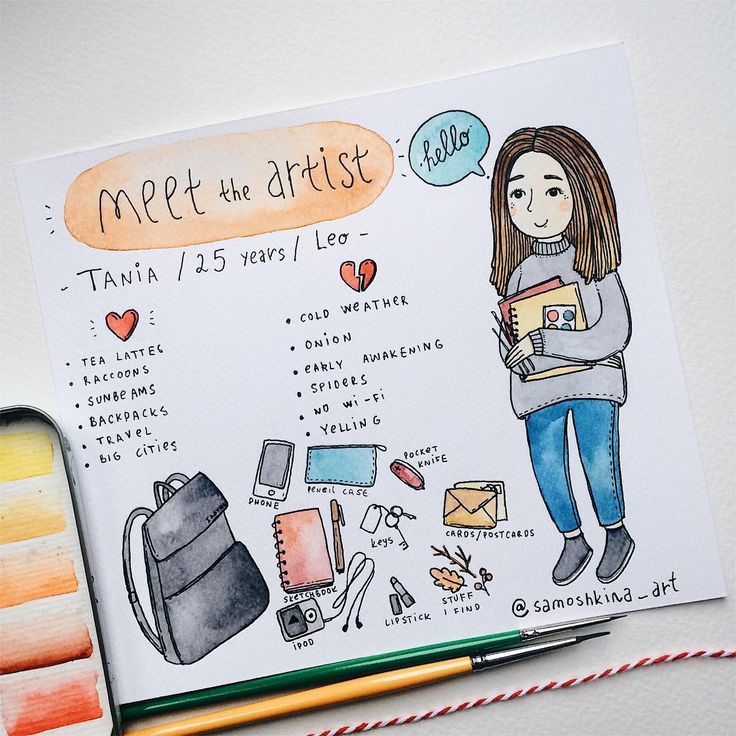 meet the artist
hello
- TANIA / 25 years / Leo -
• TEA LATTES
• RACCOONS
• SUNBEAMS
• BACKPACKS
• TRAVEL
• BIG CITIES
• COLD WEATHER
• ONION
• EARLY AWAKENING
• SPIDERS
• NO WI-FI
• YELLING
PHONE
PENCIL CASE
POCKET
KNIFE
SKETCHBOOK
KEYS
CARDS/POSTCARDS
IPOD
LIPSTICK
STUFF
I FIND
@samoshkina_art